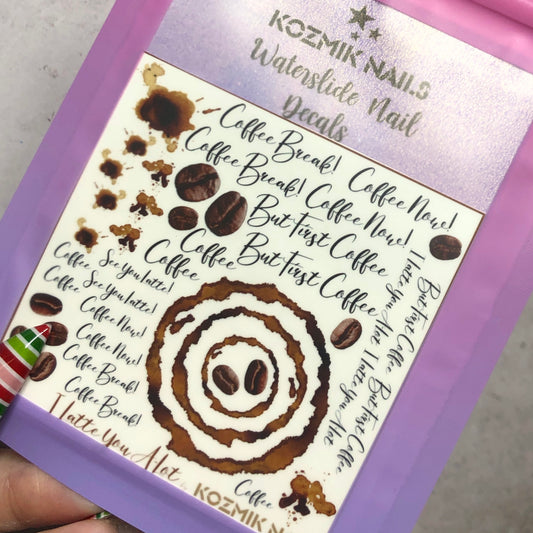 KOZMIK NAILS
Waterslide Nail
Decals
Coffee Break! Coffee Now!
Coffee Break! Coffee Now!
But First Coffee
Coffee But First Coffee
Coffee
Coffee See you latte!
Coffee See you latte!
Coffee Now!
Coffee Now!
Coffee Break!
Coffee Break!
I latte You A lot
But First Coffee But First Coffee
I latte you A lot I latte you A lot
Coffee
KOZMIK N